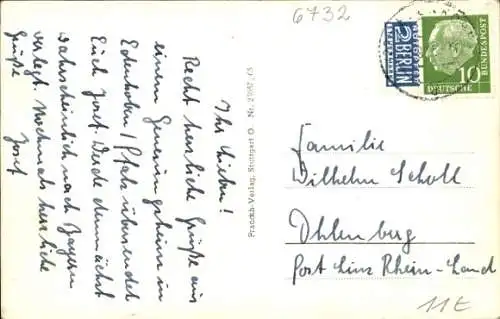 6732
Ihr Lieben!
Recht herzliche Grüße aus
einem Genesungsheim in
Edenkoben / Pfalz übersendet
Euch Josef. Werde demnächst
wahrscheinlich nach Bayern
verlegt. Nochmals herzliche
Grüße
Josef
Franckh-Verlag, Stuttgart O. Nr.
2 BERLIN
NOTOPFER
STEUERMARKE
10
DEUTSCHE
BUNDESPOST
Familie
Wilhelm Scholl
Ohlenberg
Post Linz Rhein-Land
11E